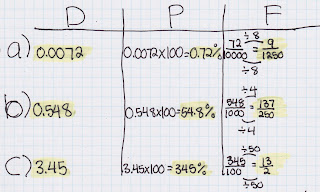 D P F
÷8
a) 0.0072 0.0072x100=0.72% 72/10000 = 9/1250
÷8
÷4
b) 0.548 0.548x100=54.8% 548/1000 = 137/250
÷4
÷50
c) 3.45 3.45x100=345% 345/100 = 13/2
÷50